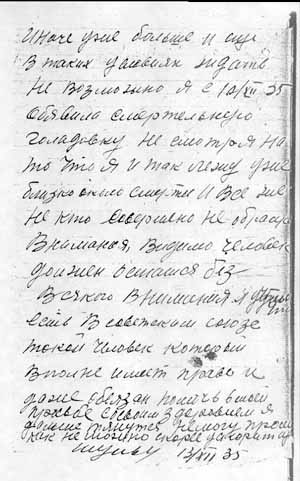 Иначе уже больше и еще
в таких условиях ждать
не возможно я с 10/XII 35
обявила смертельную
голадовку не смотря на
то что я и так лежу уже
близко около смерти и все же
не кто совершено не обраща
внимания, видимо человек
должен остатся без
всякого внимания я
есть в советским союзе
такой человек который
вполне имеет право и
даже обязан помочь в моей
с своим здоровьем я
дальше тянутся немогу прошу
как не можно скорее
13/XII 35